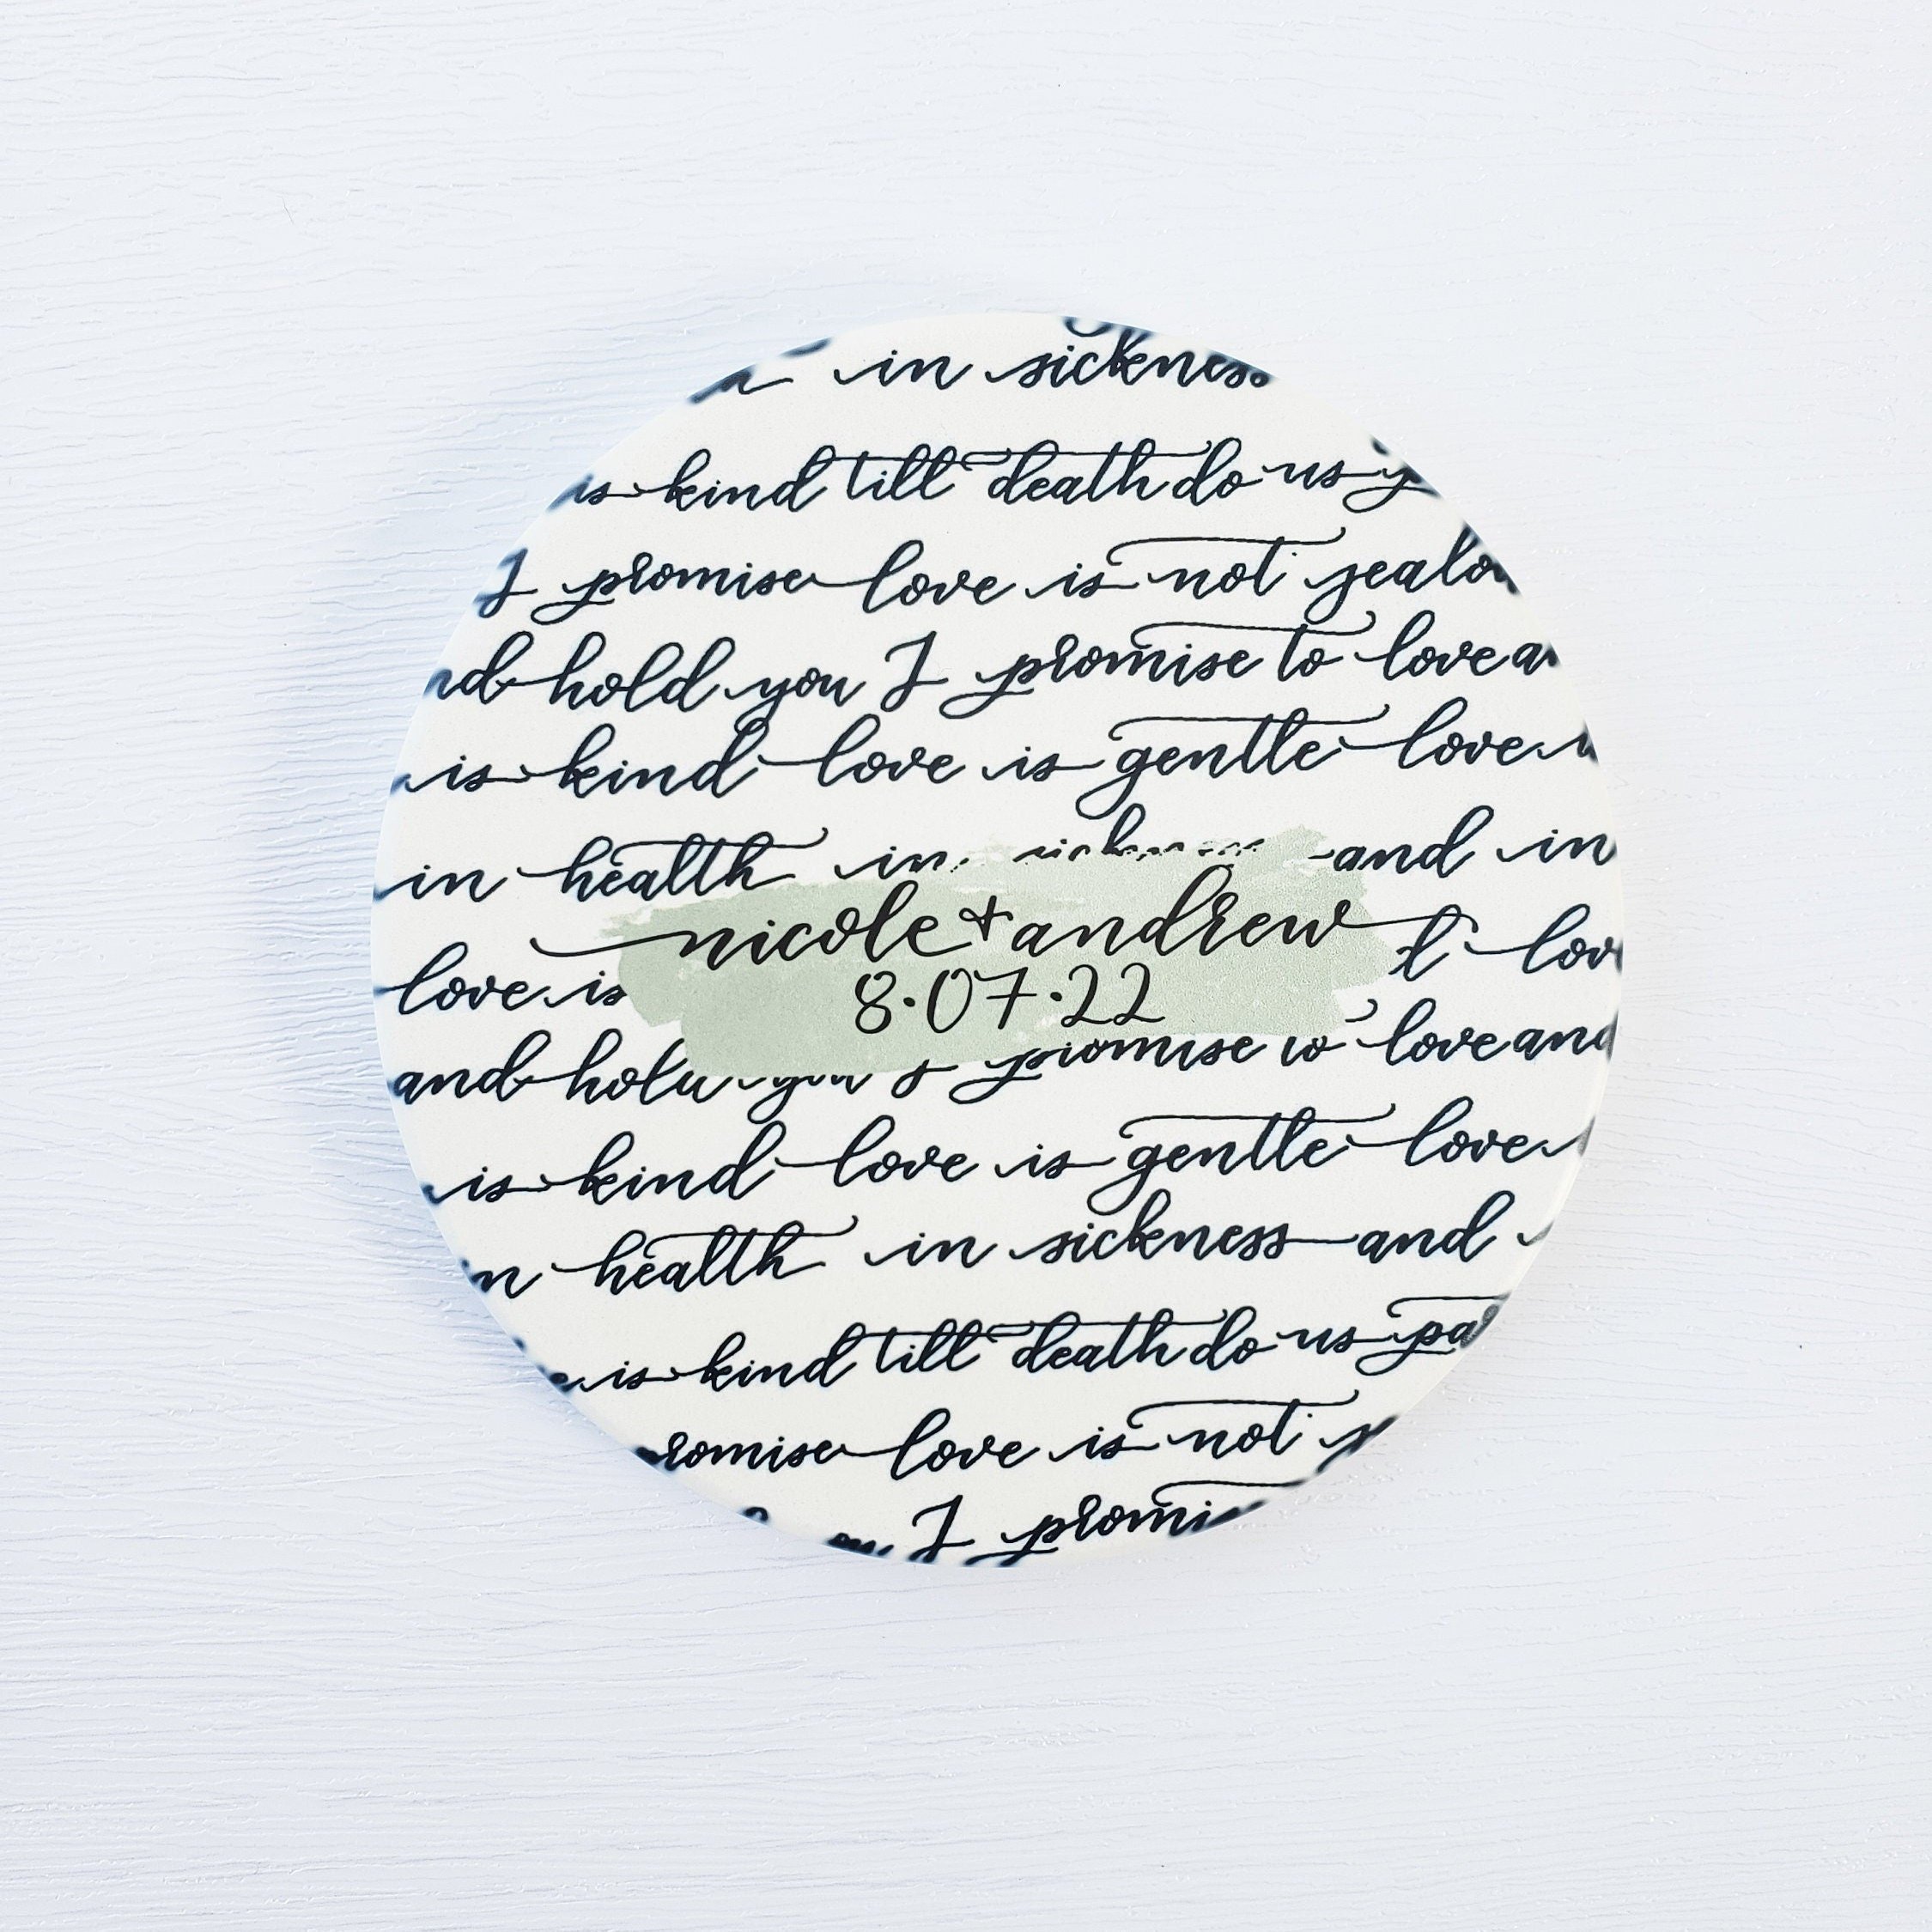 in sickness
is kind till death do us
I promise love is not jealo
nd hold you I promise to love a
is kind love is gentle love
in health in sickness and in
nicole + andrew
8·07·22
love is t lov
and hold you I promise to love and
is kind love is gentle love
in health in sickness and
is kind till death do us pa
romise love is not
I promi